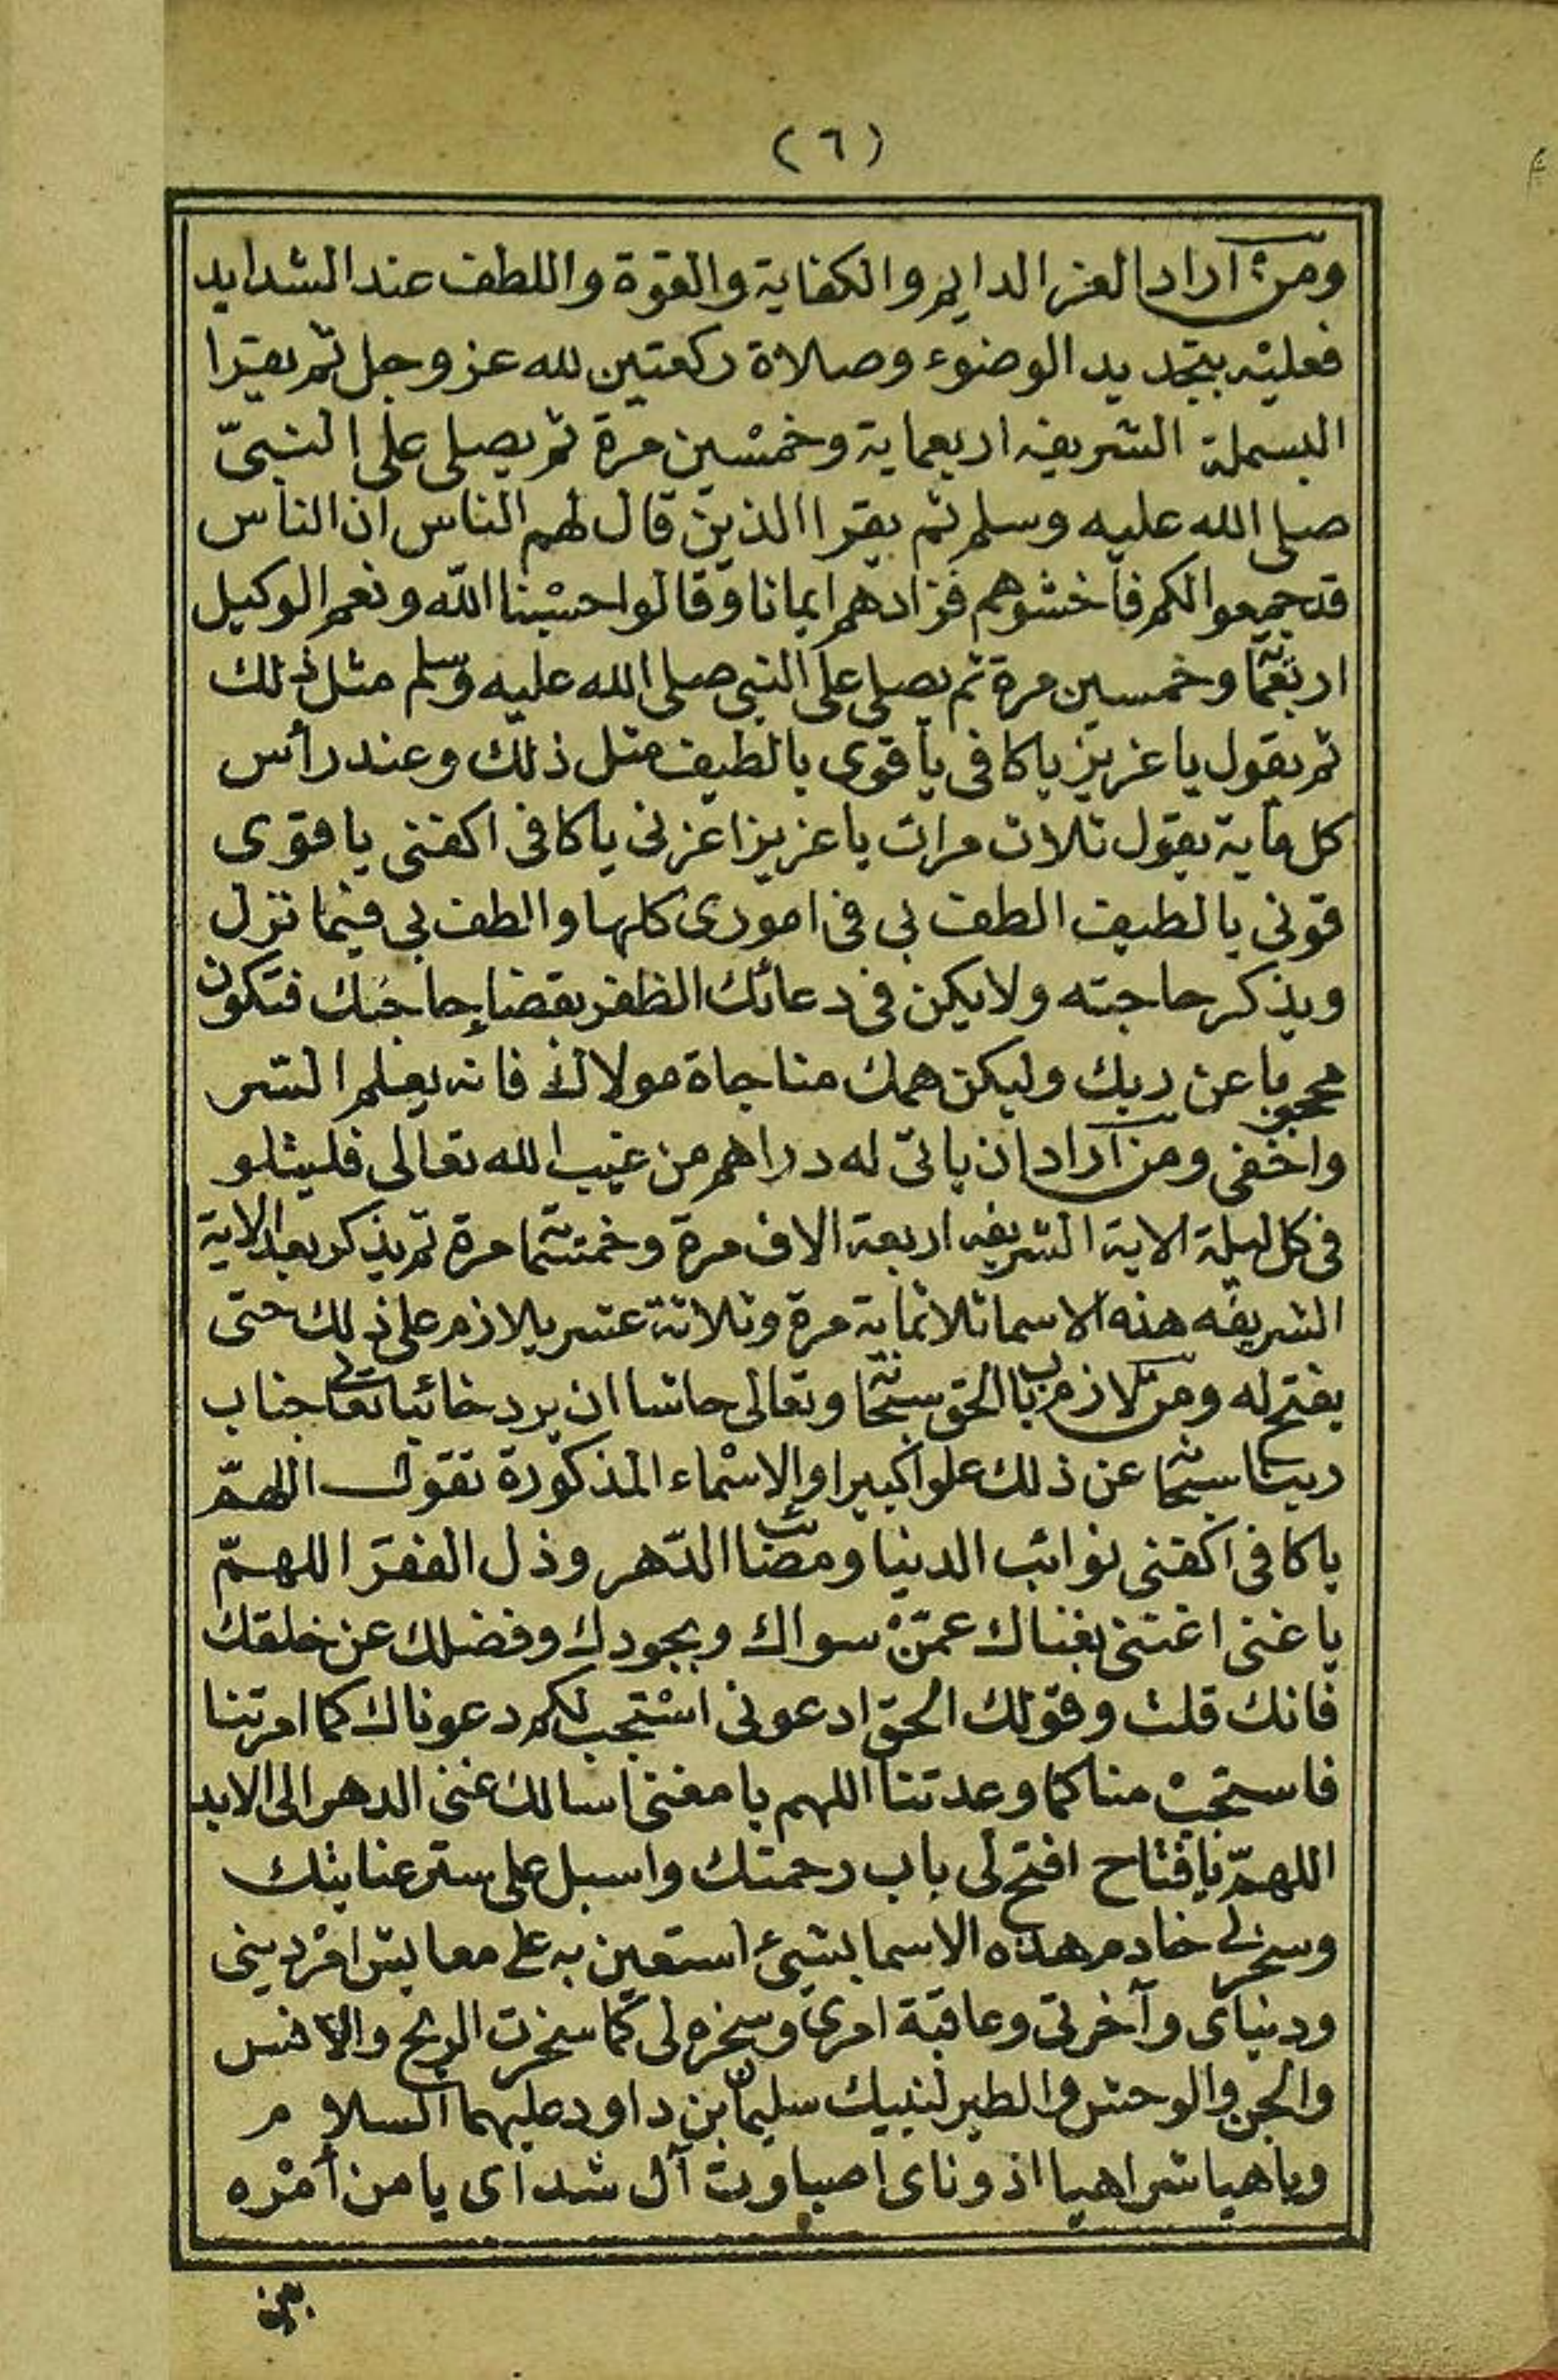 (٦)
ومن اراد العز الدايم والكفاية والقوة واللطف عند الشدايد
فعليه بتجديد الوضوء وصلاة ركعتين لله عز وجل ثم يقرا
البسملة الشريفه اربعماية وخمسين مرة ثم يصلى على النبىّ
صلى الله عليه وسلم ثم يقرا الذين قال لهم الناس ان الناس
قد جمعوا لكم فاخشوهم فزادهم ايمانا وقالوا حسْبنا الله ونعم الوكيل
اربعمائة وخمسين مرة ثم يصلى على النبى صلى الله عليه وسلم مثل ذلك
ثم يقول يا عزيز يا كافى يا قوى يا لطيف مثل ذلك وعند رأس
كل ماية يقول ثلاث مرات يا عزيز اعزنى يا كافى اكفنى يا قوى
قونى يا لطيف الطف بى فى امورى كلها والطف بى فيما نزل
ويذكر حاجته ولا يكن فى دعائك الظفر بقضاء حاجتك فتكون
محجوبا عن ربك وليكن همك مناجاة مولاك فانه يعلم السر
واخفى ومن اراد ان ياتى له دراهم من غيب الله تعالى فليتلو
فى كل ليلة الاية الشريفه اربعة الاف مرة وخمسمائة مرة ثم يذكر بعد الاية
الشريفه هذه الاسما ثلاثماية مرة وثلاثة عشر يلازم على ذلك حتى
يفتح له ومن لازم باب الحق سبحانه وتعالى حاشا ان يرد خائبا تعالى جناب
ربنا سبحانه عن ذلك علوا كبيرا والاسْماء المذكورة تقول اللهمّ
يا كافى اكفنى نوائب الدنيا ومصائب الدّهر وذل الفقر اللهمّ
يا غنى اغننى بغناك عمّنْ سواك وبجودك وفضلك عن خلقك
فانك قلت وقولك الحق ادعونى اسْتجب لكم دعوناك كما امرتنا
فاستجبْ منا كما وعدتنا اللهم يا مغنى اسالك غنى الدهر الى الابد
اللهمّ يا فتاح افتح لى باب رحمتك واسبل على ستر عنايتك
وسخر لى خادم هذه الاسما بشيئ استعين به على معايش امْر دينى
ودنياى وآخرتى وعاقبة امرى وسخره لى كما سخرت الريح والانس
والجن والوحش والطير لنبيك سليمان بن داود عليهما السلام
وباهيا شراهيا اذوناى اصباوت آل شداى يا من أمْره
بين